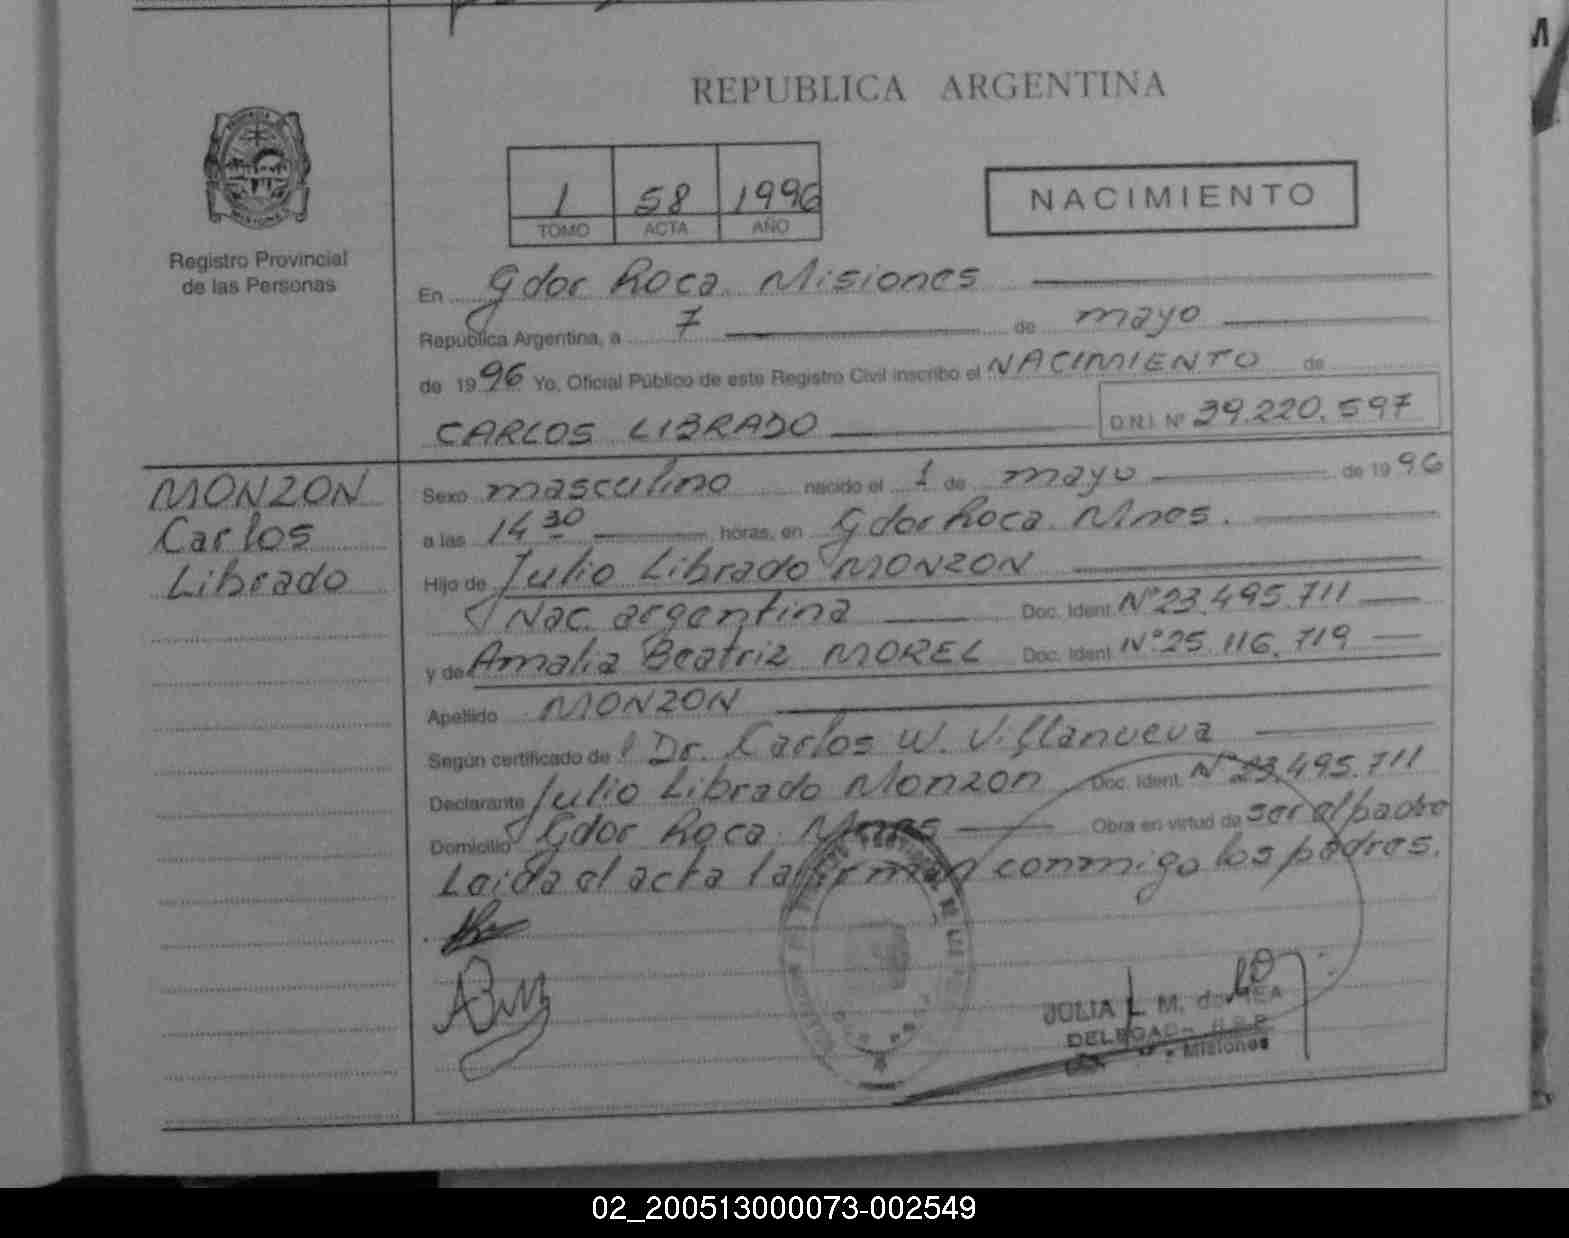 REPUBLICA ARGENTINA
1 58 1996
TOMO ACTA AÑO
NACIMIENTO
Registro Provincial
de las Personas
MISIONES
En Gdor Roca. Misiones
Republica Argentina, a 7 de mayo
de 1996 Yo, Oficial Público de este Registro Civil inscribo el NACIMIENTO de
CARLOS LIBRADO D.N.I. Nº 39.220.597
MONZON
Carlos
Librado
Sexo masculino nacido el 1 de mayo de 1996
a las 14 30 horas, en Gdor Roca. Mnes.
Hijo de Julio Librado MONZON
Nac. argentina Doc. Ident. Nº 23.495.711
y de Amalia Beatriz MOREL Doc. Ident. Nº 25.116.719
Apellido MONZON
Según certificado de Dr. Carlos W. Villanueva
Declarante Julio Librado Monzon Doc. Ident. Nº 23.495.711
Domicilio Gdor Roca. Mnes Obra en virtud de ser el padre
Leida el acta la firman conmigo los padres.
JULIA L. M. de
DELEGADA
Misiones
02_200513000073-002549